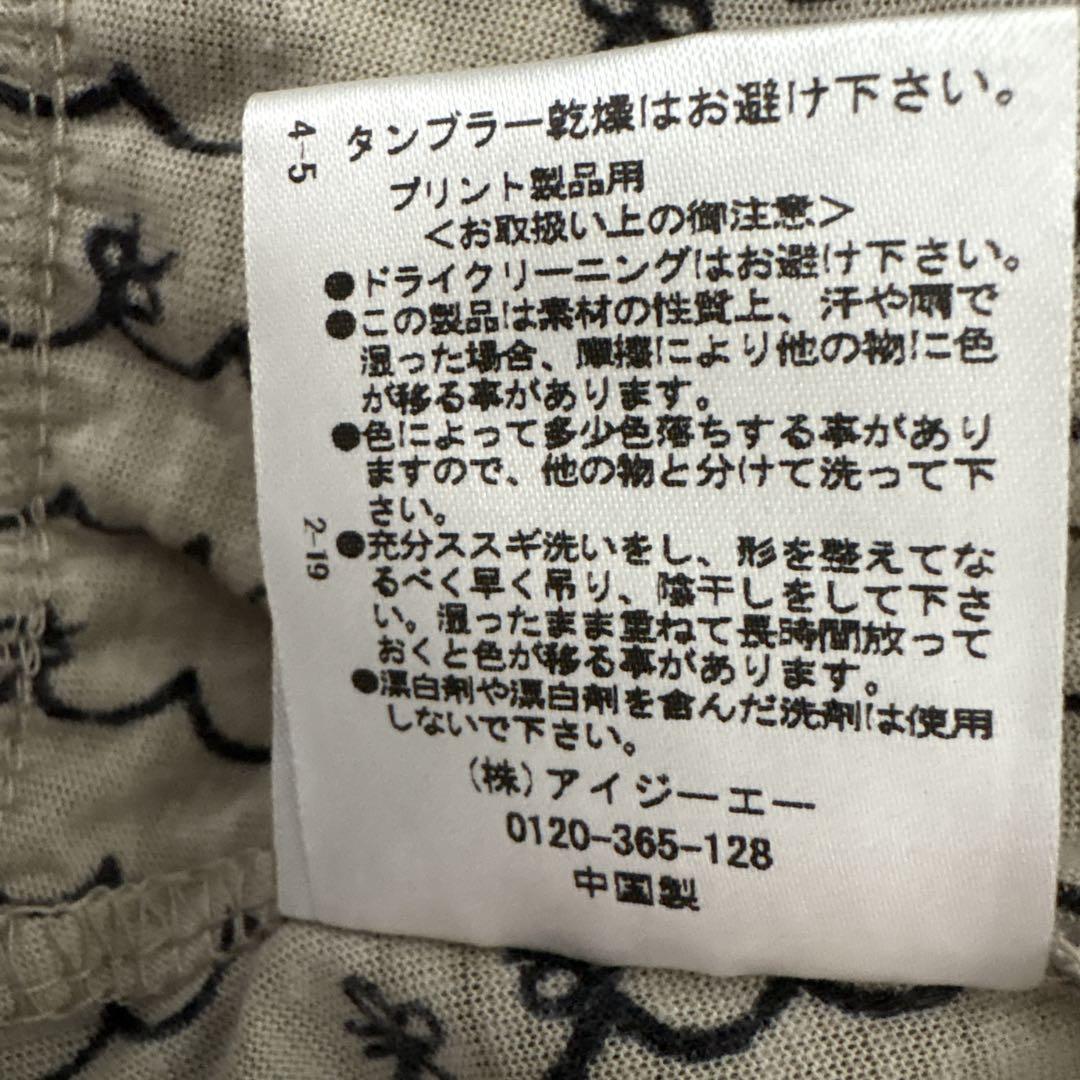 4-5
タンブラー乾燥はお避け下さい。
プリント製品用
<お取扱い上の御注意>
●ドライクリーニングはお避け下さい。
●この製品は素材の性質上、汗や雨で
湿った場合、摩擦により他の物に色
が移る事があります。
●色によって多少色落ちする事があり
ますので、他の物と分けて洗って下
さい。
2-19
●充分ススギ洗いをし、形を整えてな
るべく早く吊り、陰干しをして下さ
い。湿ったまま重ねて長時間放って
おくと色が移る事があります。
●漂白剤や漂白剤を含んだ洗剤は使用
しないで下さい。
(株)アイジーエー
0120-365-128
中国製